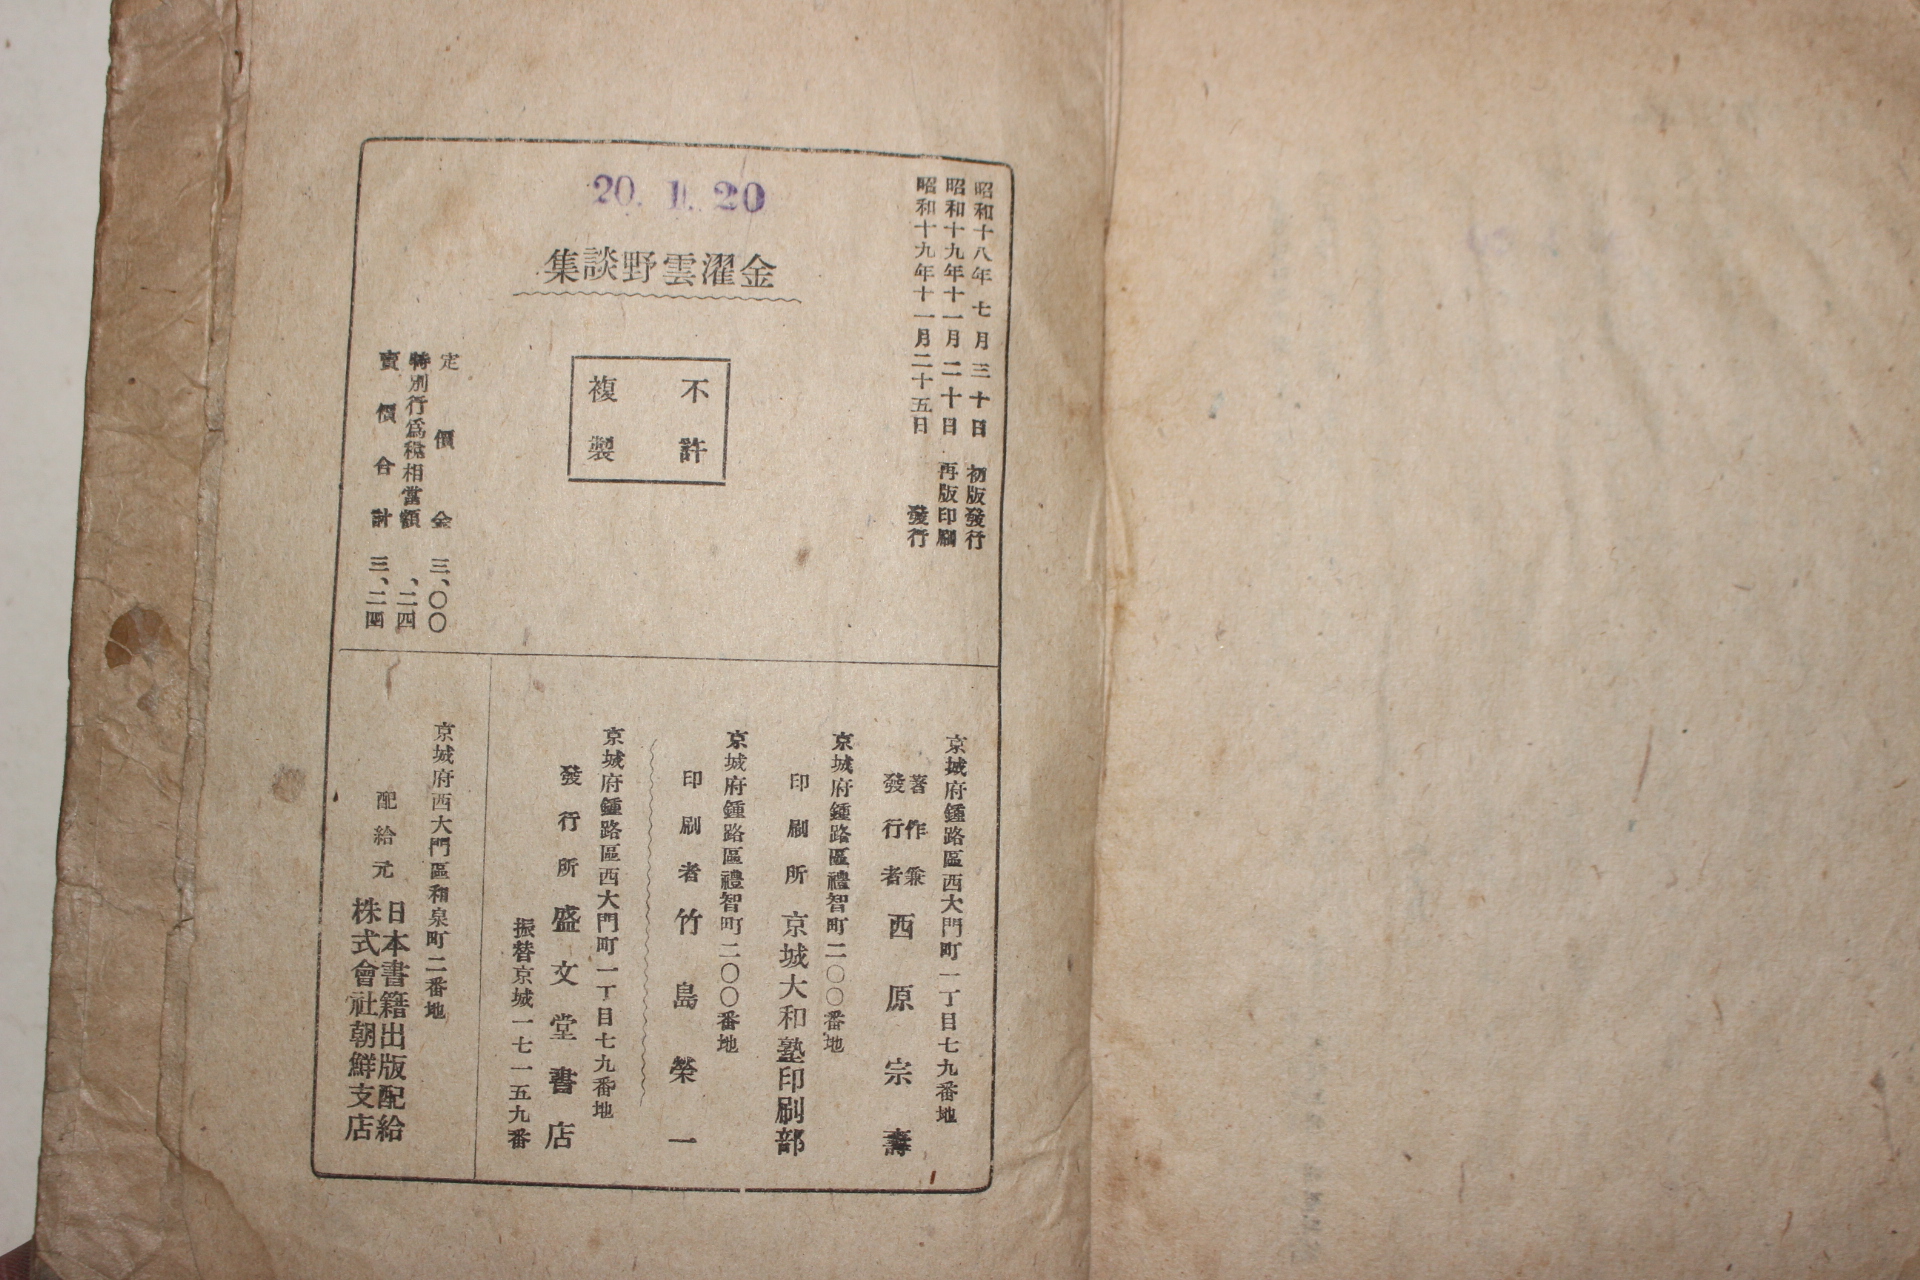 昭和十八年七月三十日 初版發行
昭和十九年十一月二十日 再版印刷
昭和十九年十一月二十五日 發行
20. 1. 20
金濯雲野談集
不許
複製
定價金 三、〇〇
特別行爲稅相當額 、二四
賣價合計 三、二四
京城府鍾路區西大門町一丁目七九番地
著作兼
發行者 西原宗壽
京城府鍾路區禮智町二〇〇番地
印刷所 京城大和塾印刷部
京城府鍾路區禮智町二〇〇番地
印刷者 竹島榮一
京城府鍾路區西大門町一丁目七九番地
發行所 盛文堂書店
振替京城一七一五九番
京城府西大門區和泉町二番地
配給元 日本書籍出版配給
株式會社朝鮮支店